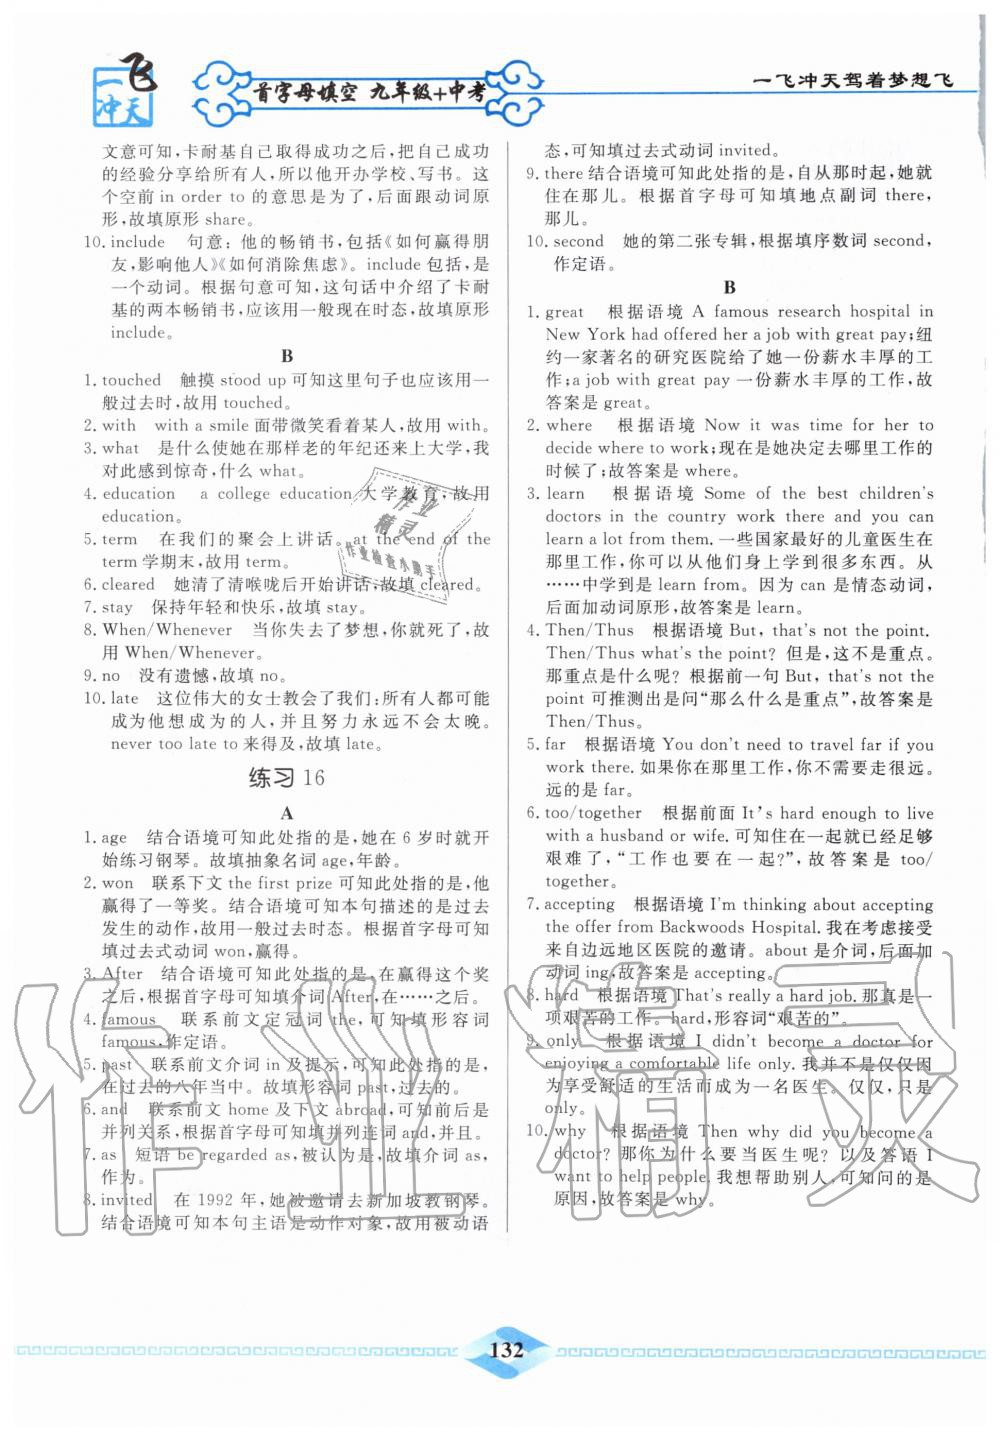 一飞冲天
首字母填空 九年级+中考
一飞冲天驾着梦想飞
文意可知,卡耐基自己取得成功之后,把自己成功
的经验分享给所有人,所以他开办学校、写书。这
个空前 in order to 的意思是为了,后面跟动词原
形,故填原形 share。
10. include 句意:他的畅销书,包括《如何赢得朋
友,影响他人》《如何消除焦虑》。include 包括,是
一个动词。根据句意可知,这句话中介绍了卡耐
基的两本畅销书,应该用一般现在时态,故填原形
include。
B
1. touched 触摸 stood up 可知这里句子也应该用一
般过去时,故用 touched。
2. with with a smile 面带微笑看着某人,故用 with。
3. what 是什么使她在那样老的年纪还来上大学,我
对此感到惊奇,什么 what。
4. education a college education 大学教育,故用
education。
5. term 在我们的聚会上讲话。at the end of the
term 学期末,故用 term。
6. cleared 她清了清喉咙后开始讲话,故填 cleared。
7. stay 保持年轻和快乐,故填 stay。
8. When/Whenever 当你失去了梦想,你就死了,故
用 When/Whenever。
9. no 没有遗憾,故填 no。
10. late 这位伟大的女士教会了我们:所有人都可能
成为他想成为的人,并且努力永远不会太晚。
never too late to 来得及,故填 late。
练习 16
A
1. age 结合语境可知此处指的是,她在 6 岁时就开
始练习钢琴。故填抽象名词 age,年龄。
2. won 联系下文 the first prize 可知此处指的是,他
赢得了一等奖。结合语境可知本句描述的是过去
发生的动作,故用一般过去时态。根据首字母可知
填过去式动词 won,赢得。
3. After 结合语境可知此处指的是,在赢得这个奖
之后,根据首字母可知填介词 After,在……之后。
4. famous 联系前文定冠词 the,可知填形容词
famous,作定语。
5. past 联系前文介词 in 及提示,可知此处指的是,
在过去的六年当中。故填形容词 past,过去的。
6. and 联系前文 home 及下文 abroad,可知前后是
并列关系,根据首字母可知填并列连词 and,并且。
7. as 短语 be regarded as,被认为是,故填介词 as,
作为。
8. invited 在 1992 年,她被邀请去新加坡教钢琴。
结合语境可知本句主语是动作对象,故用被动语
态,可知填过去式动词 invited。
9. there 结合语境可知此处指的是,自从那时起,她就
住在那儿。根据首字母可知填地点副词 there,
那儿。
10. second 她的第二张专辑,根据填序数词 second,
作定语。
B
1. great 根据语境 A famous research hospital in
New York had offered her a job with great pay;纽
约一家著名的研究医院给了她一份薪水丰厚的工
作;a job with great pay 一份薪水丰厚的工作,故
答案是 great。
2. where 根据语境 Now it was time for her to
decide where to work;现在是她决定去哪里工作的
时候了;故答案是 where。
3. learn 根据语境 Some of the best children's
doctors in the country work there and you can
learn a lot from them. 一些国家最好的儿童医生在
那里工作,你可以从他们身上学到很多东西。从
……中学到是 learn from。因为 can 是情态动词,
后面加动词原形,故答案是 learn。
4. Then/Thus 根据语境 But, that's not the point.
Then/Thus what's the point? 但是,这不是重点。
那重点是什么呢?根据前一句 But, that's not the
point 可推测出是问“那么什么是重点”,故答案是
Then/Thus。
5. far 根据语境 You don't need to travel far if you
work there. 如果你在那里工作,你不需要走很远。
远的是 far。
6. too/together 根据前面 It's hard enough to live
with a husband or wife. 可知住在一起就已经足够
艰难了,“工作也要在一起?”,故答案是 too/
together。
7. accepting 根据语境 I'm thinking about accepting
the offer from Backwoods Hospital. 我在考虑接受
来自边远地区医院的邀请。about 是介词,后面加
动词 ing,故答案是 accepting。
8. hard 根据语境 That's really a hard job. 那真是一
项艰苦的工作。hard,形容词“艰苦的”。
9. only 根据语境 I didn't become a doctor for
enjoying a comfortable life only. 我并不是仅仅因
为享受舒适的生活而成为一名医生。仅仅,只是
only。
10. why 根据语境 Then why did you become a
doctor? 那你为什么要当医生呢?以及答语 I
want to help people. 我想帮助别人,可知问的是
原因,故答案是 why。
作业
精灵
作业检查小助手
作业精灵
132